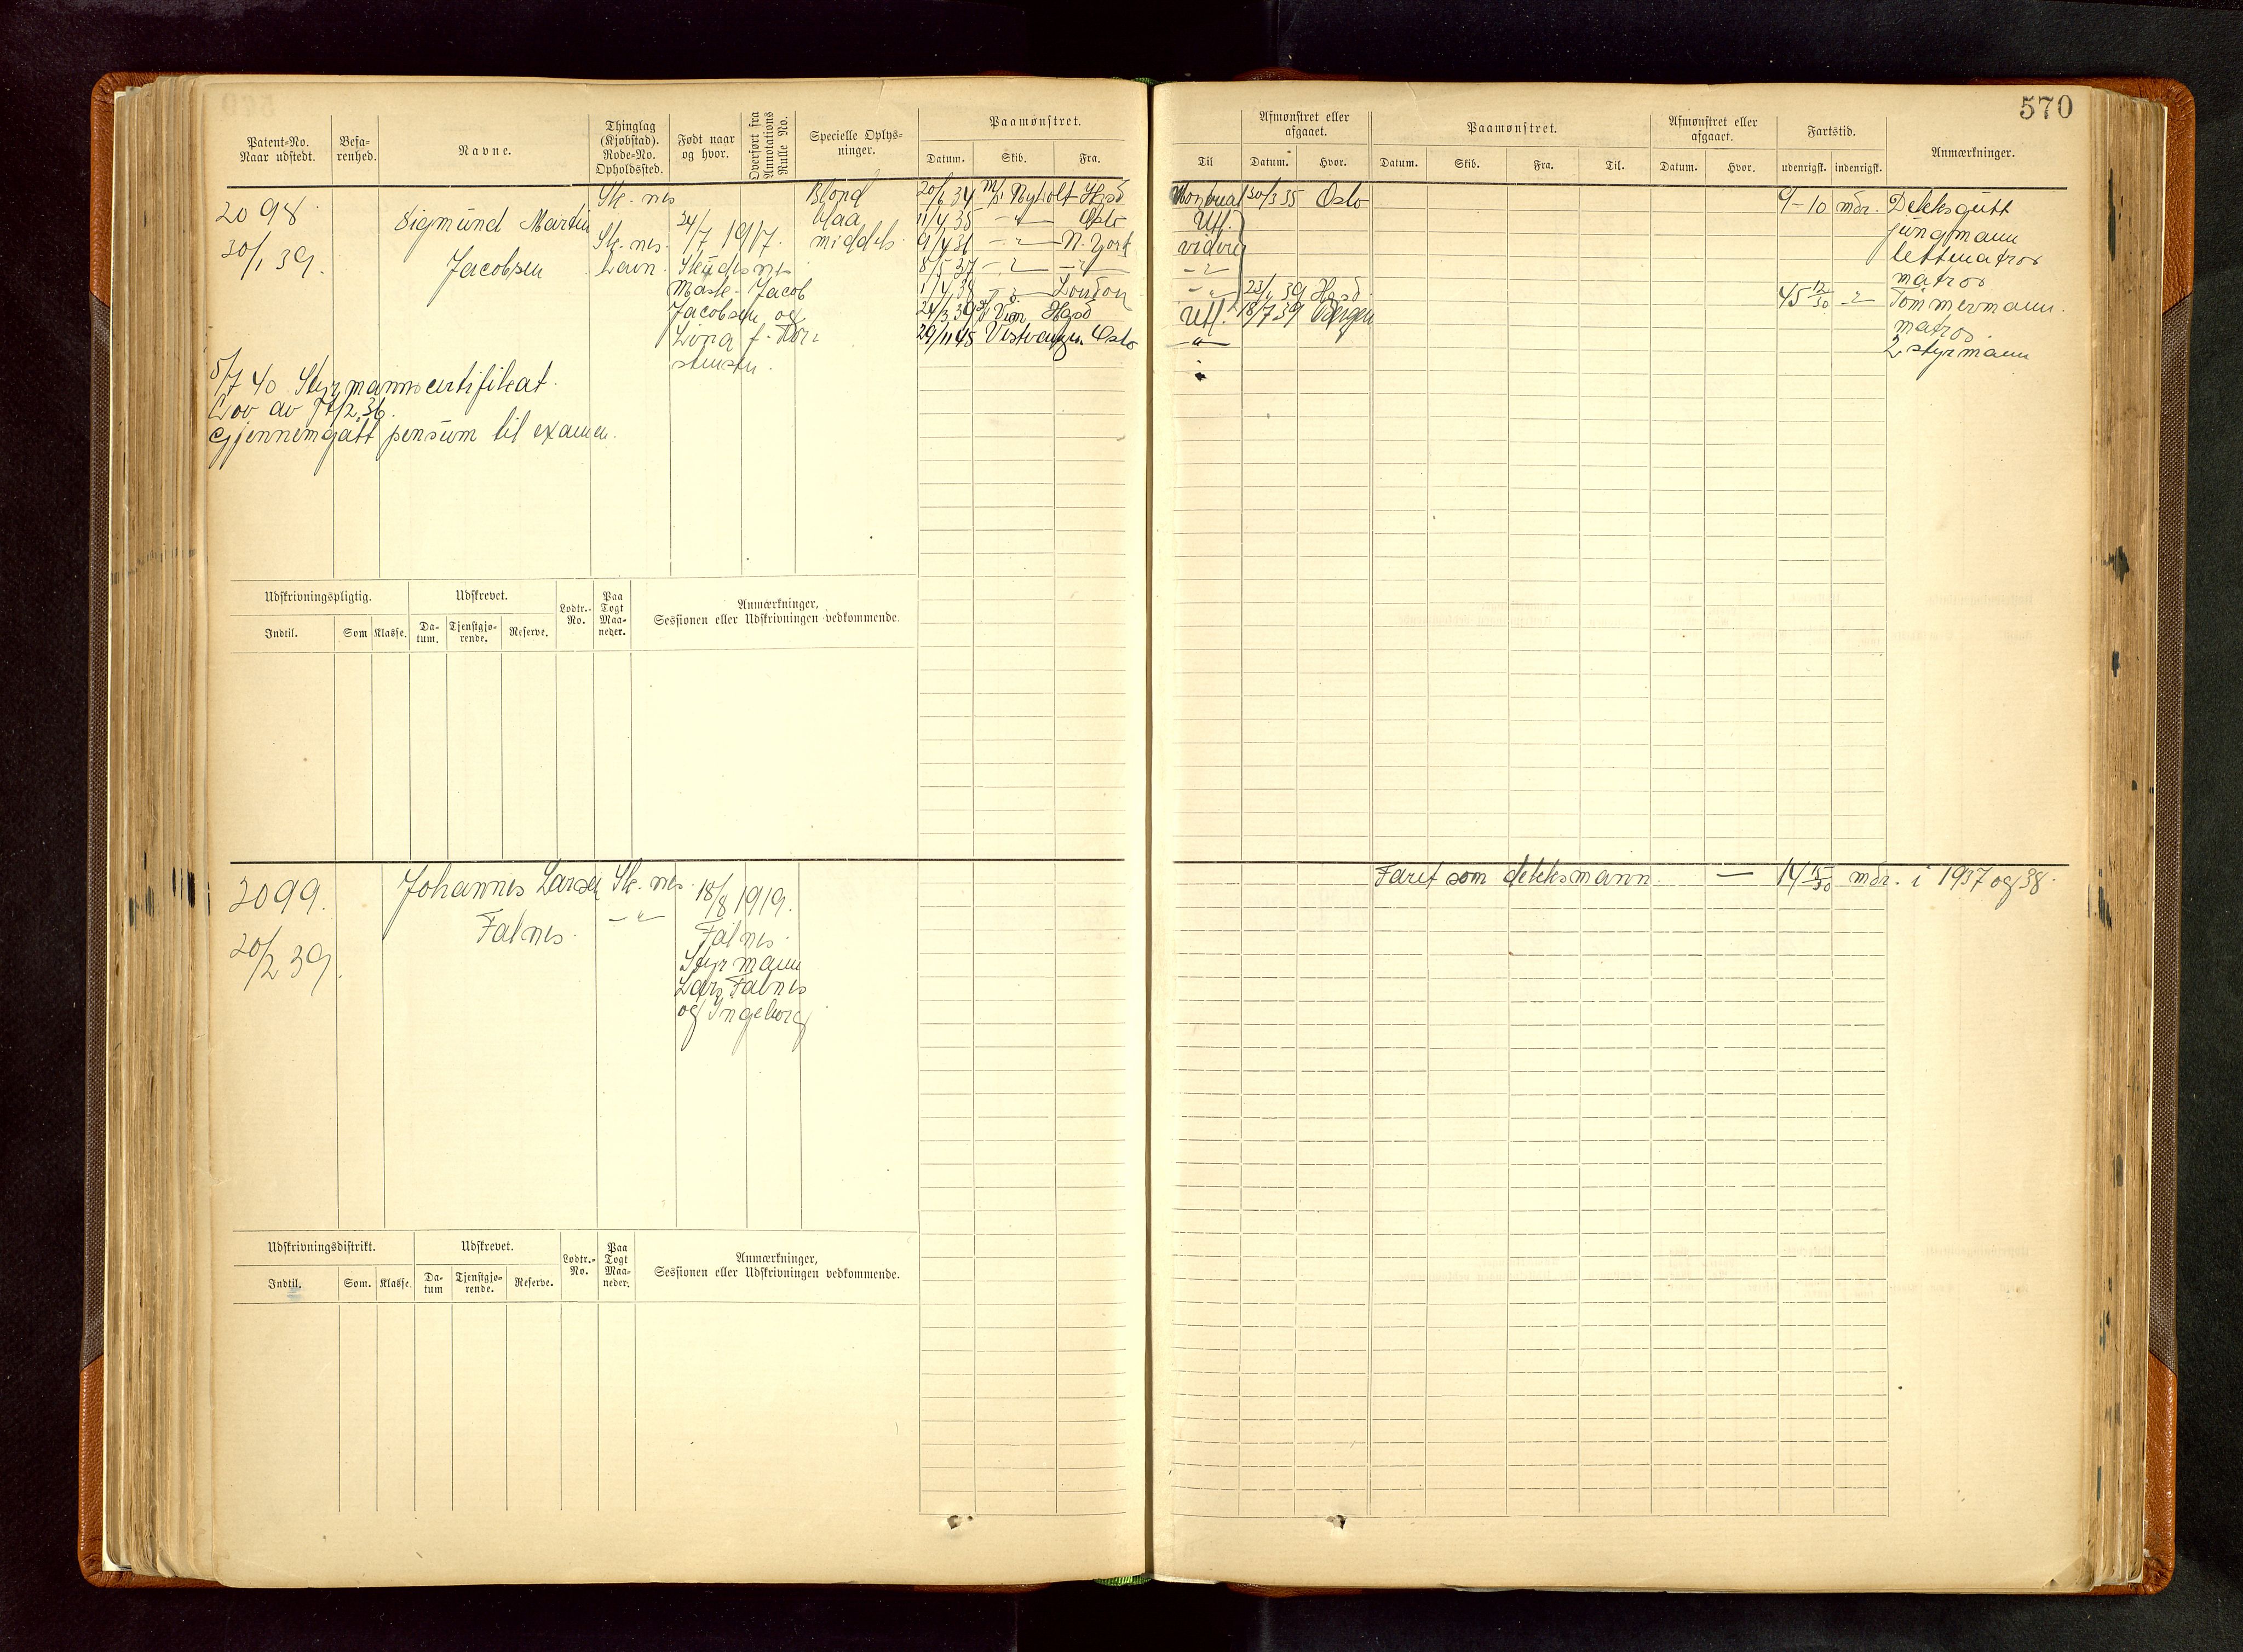 570
Patent-No. Naar udstedt.
Befarenhed.
Navne.
Thinglag (Kjøbstad). Rode-No. Opholdssted.
Født naar og hvor.
Overført fra Annotations Rulle No.
Specielle Oplysninger.
Paamønstret.
Datum. Skib. Fra.
Til
Afmønstret eller afgaaet.
Datum. Hvor.
Paamønstret.
Datum. Skib. Fra. Til.
Afmønstret eller afgaaet.
Datum. Hvor.
Fartstid.
udenrigsk. indenrigsk.
Anmærkninger.
2098
30/1 39.
Sigmund Martin
Jacobsen
Sk. nes
Sk. nes.
24/7 1917.
Skudesnes
Mask. Jacob
Jacobsen og
f. Tor-
stensen.
Blond
blaa
middels
20/6 34 M/S Nyholt Hgsd Montreal 30/3 35 Oslo 9-10 mdr. Dekksgutt
11/4 35 — " — Oslo Utl. jungmann
9/4 36 — " — N. York videre lettmatros
8/5 37 — " — — " — — " — matros
1/4 38 — " — London — " — 23/1 39 Hgsd 45 12/30 — " — Tømmermann.
24/3 39 Hgsd Utl. 18/7 39 Bergen matros.
29/11 45 Vestvangen Oslo — " — 2 styrmann
5/7 40 Styrmannscertifikat.
Lov av 36.
Gjennemgått pensum til examen.
Udskrivningspligtig.
Indtil. Som Klasse.
Udskrevet.
Datum. Tjenstgjørende. Reserve.
Lodtr.-No.
Paa Togt Maaneder.
Anmærkninger,
Sessionen eller Udskrivningen vedkommende.
2099.
20/2 39.
Johannes Larsen
Falnes.
Sk. nes.
— " —
18/8 1919.
Falnes.
Styrmann
Lars Falnes
og Ingeborg
Faret som dekksmann. — 14 15/30 mdr. i 1937 og 38.
Udskrivningsdistrikt.
Indtil. Som. Klasse.
Udskrevet.
Datum Tjenstgjørende. Reserve.
Lodtr.-No.
Paa Togt Maaneder.
Anmærkninger,
Sessionen eller Udskrivningen vedkommende.